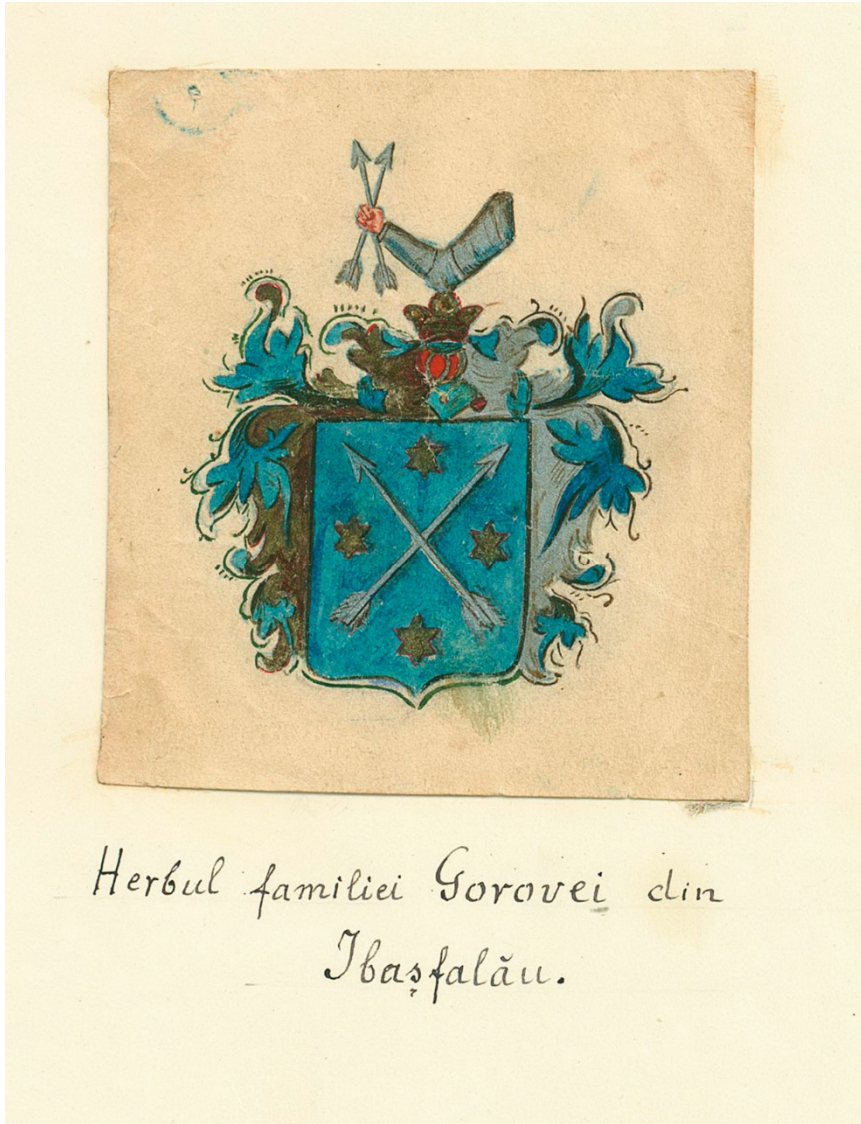 Herbul familiei Gorovei din
Ibașfalău.